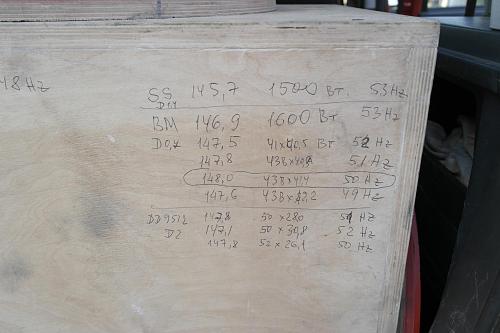 48Hz
SS 145,7 1500 Вт. 53Hz
D1,1
BM 146,9 1600 Вт 53Hz
D0,4 147,5 41x40,5 Вт 52 Hz
147,8 43В x 51 Hz
148,0 43В x 41,4 50 Hz
147,6 43В x 42,2 49 Hz
DD9512 147,8 50 x 28,0 51 Hz
D2 147,1 50 x 30,8 52 Hz
147,8 52 x 26,1 50 Hz